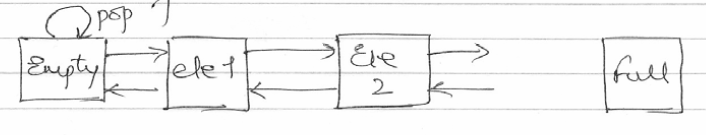 pop
Empty ele1 Ele full
2